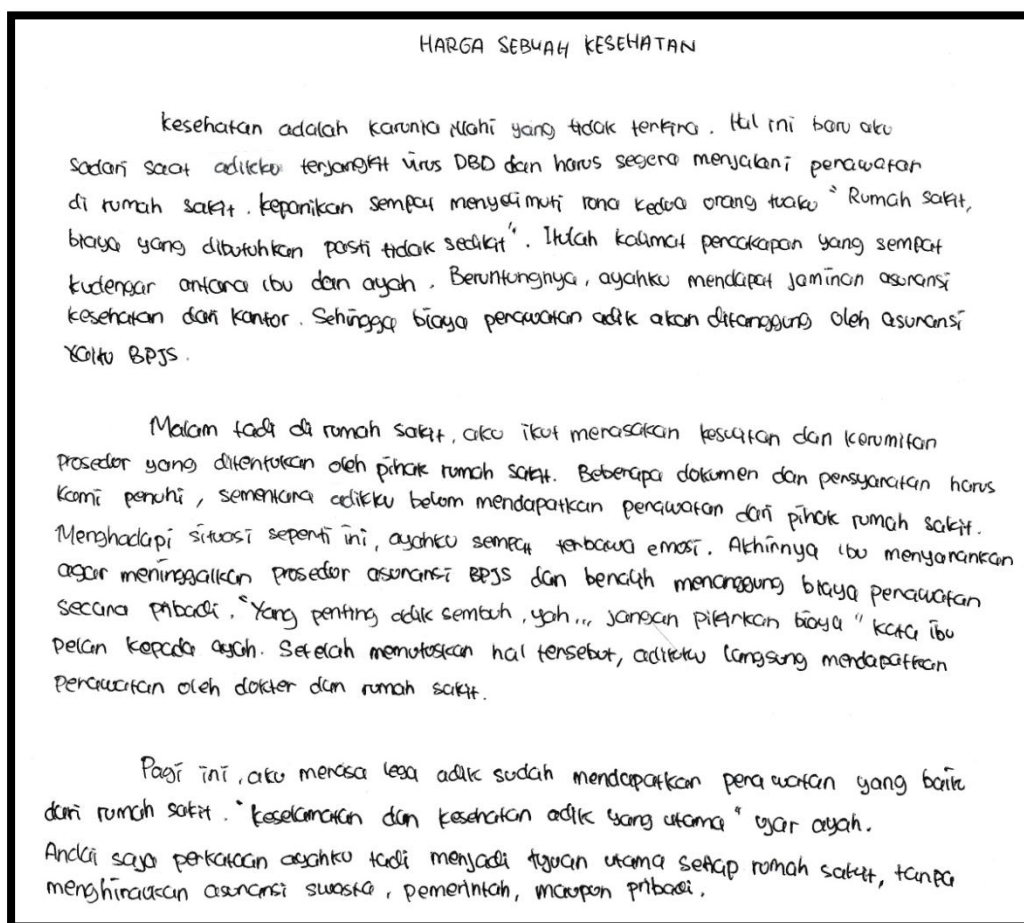 HARGA SEBUAH KESEHATAN
kesehatan adalah karunia illahi yang tidak terkira. Hal ini baru aku
sadari saat adikku terjangkit virus DBD dan harus segera menjalani perawatan
di rumah sakit. kepanikan sempat menyelimuti rona kedua orang tuaku "Rumah sakit,
biaya yang dibutuhkan pasti tidak sedikit". Itulah kalimat percakapan yang sempat
kudengar antara ibu dan ayah. Beruntungnya, ayahku mendapat jaminan asuransi
kesehatan dari kantor. Sehingga biaya perawatan adik akan ditanggung oleh asuransi
yaitu BPJS.
Malam tadi di rumah sakit, aku ikut merasakan kesulitan dan kerumitan
prosedur yang ditentukan oleh pihak rumah sakit. Beberapa dokumen dan persyaratan harus
kami penuhi, sementara adikku belum mendapatkan perawatan dari pihak rumah sakit.
Menghadapi situasi seperti ini, ayahku sempat terbawa emosi. Akhirnya ibu menyarankan
agar meninggalkan prosedur asuransi BPJS dan beralih menanggung biaya perawatan
secara pribadi. "Yang penting adik sembuh, yah... jangan pikirkan biaya" kata ibu
pelan kepada ayah. Setelah memutuskan hal tersebut, adikku langsung mendapatkan
perawatan oleh dokter dan rumah sakit.
Pagi ini, aku merasa lega adik sudah mendapatkan perawatan yang baik
dari rumah sakit. "keselamatan dan kesehatan adik yang utama" ujar ayah.
Andai saja perkataan ayahku tadi menjadi tujuan utama setiap rumah sakit, tanpa
menghiraukan asuransi swasta, pemerintah, maupun pribadi.